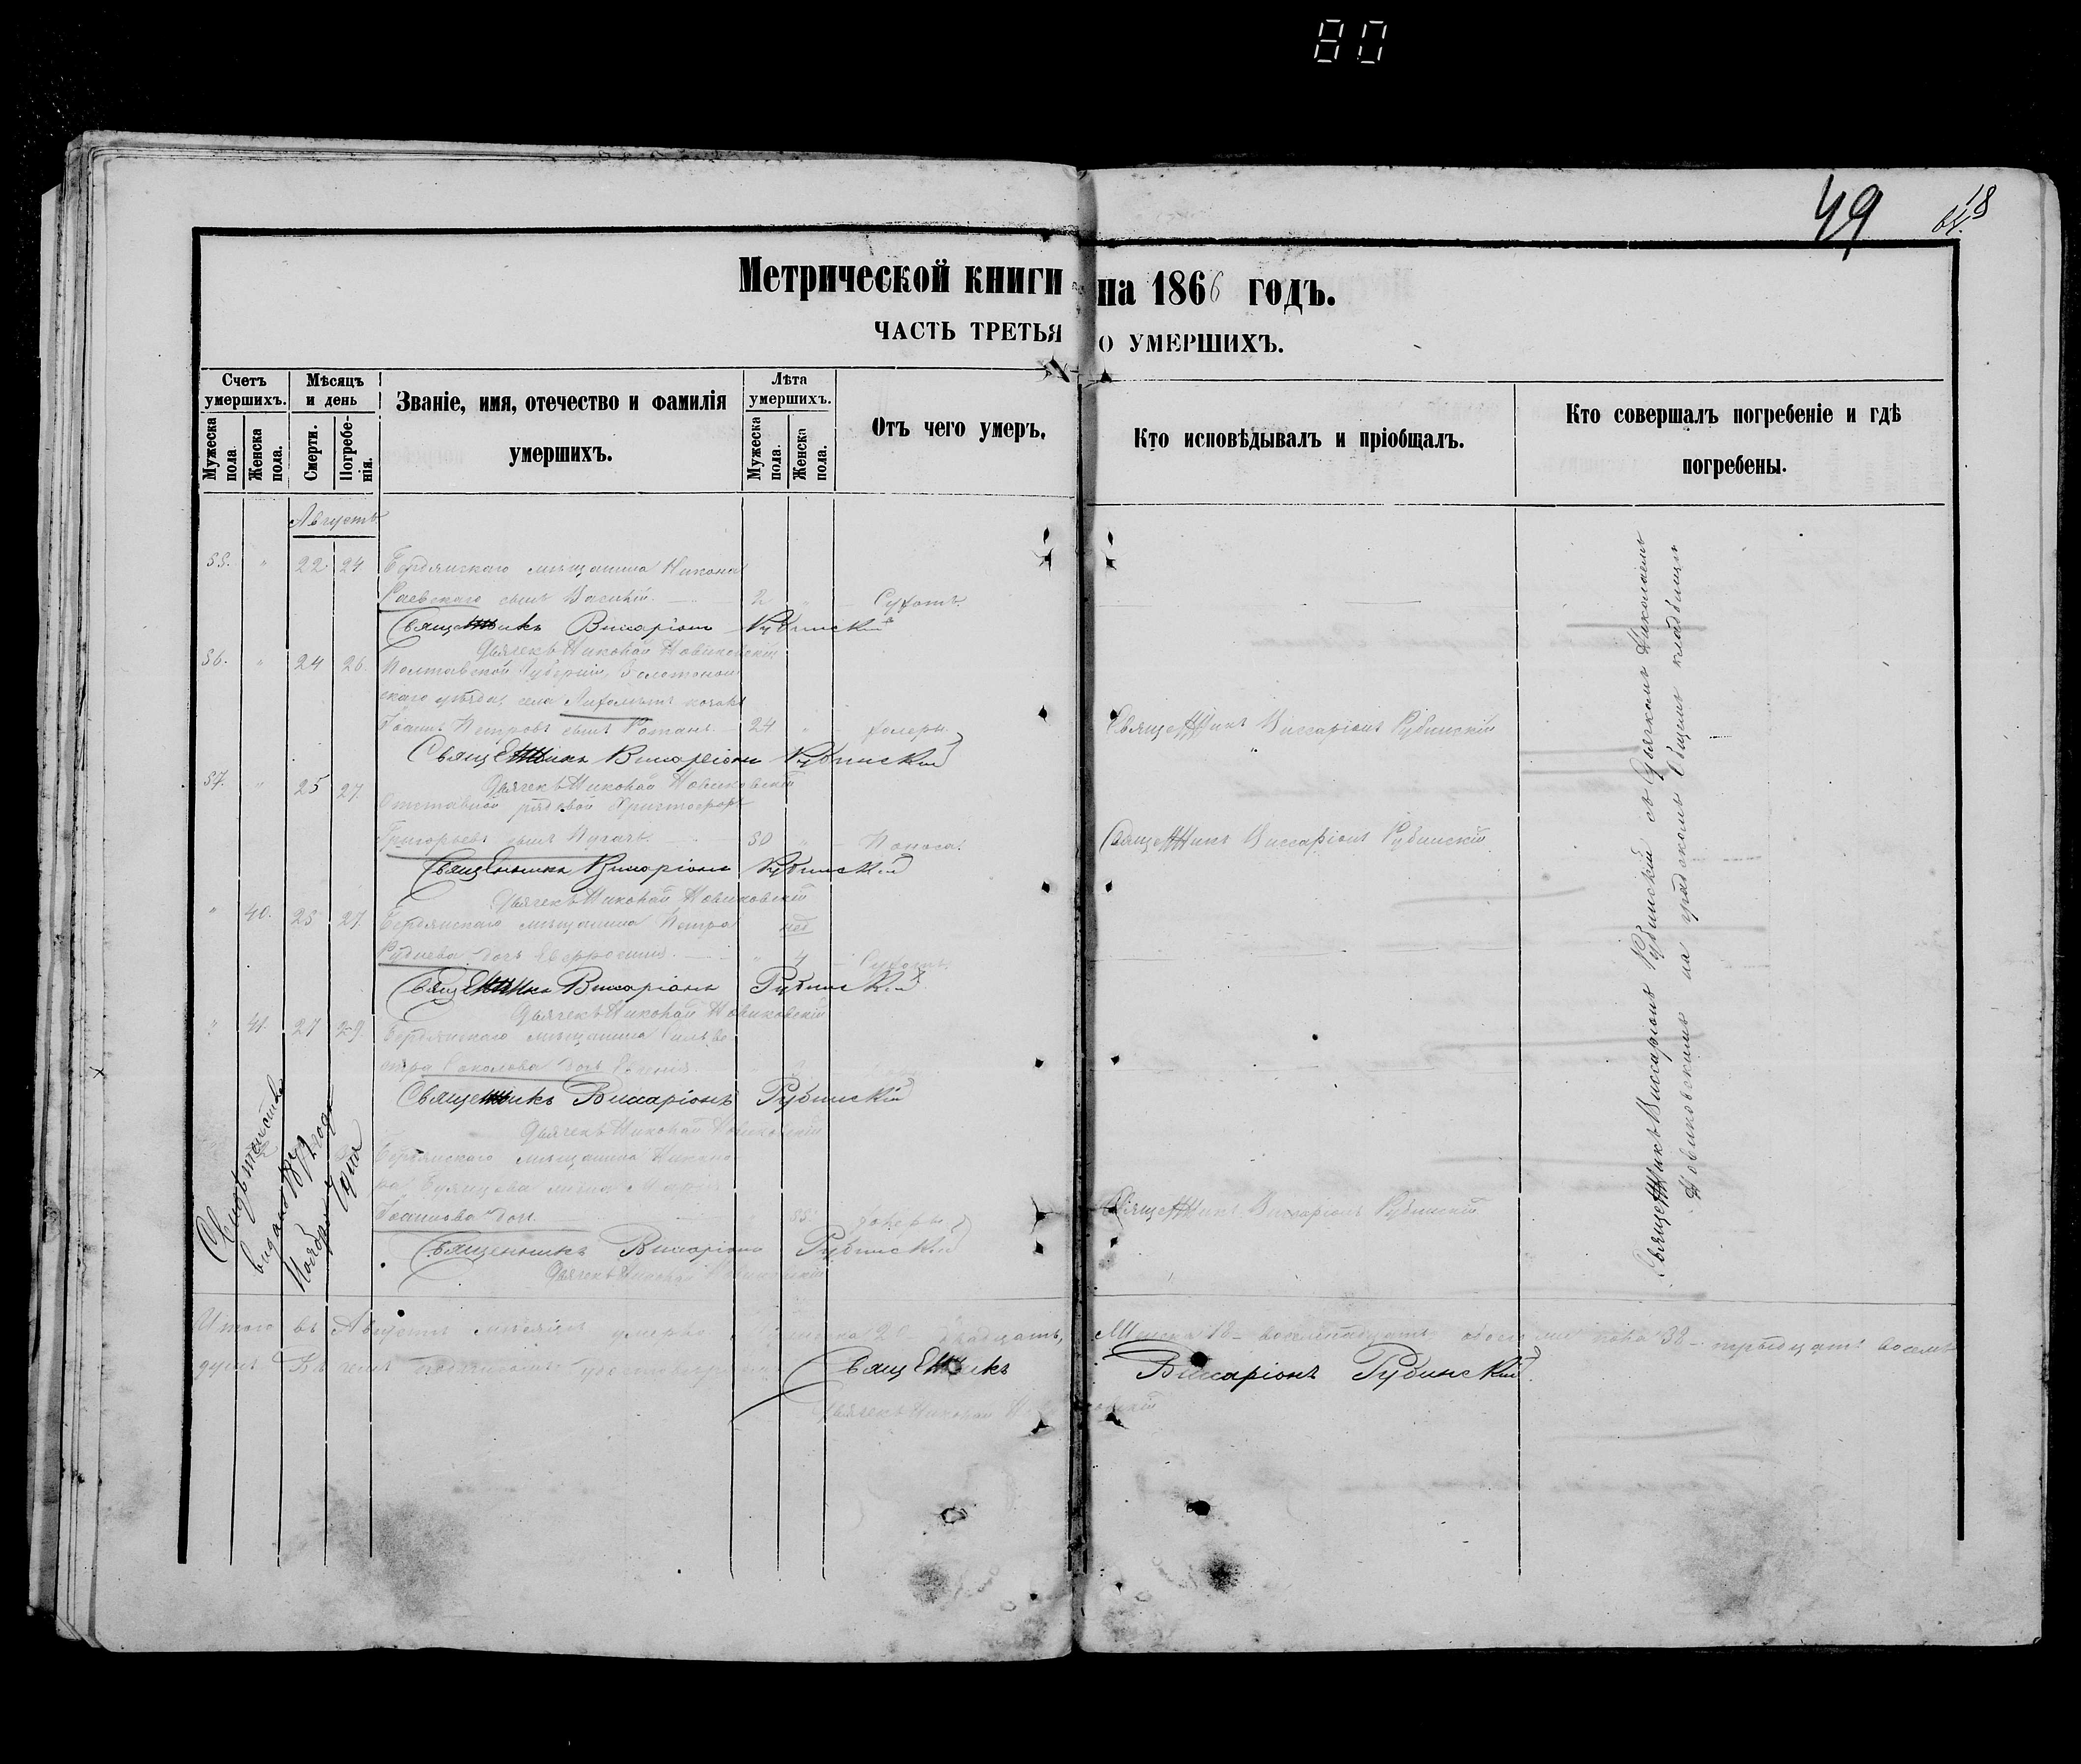 80
49
Метрической книги на 1866 годъ.
ЧАСТЬ ТРЕТЬЯ О УМЕРШИХЪ.
Счетъ умершихъ.
Мужеска пола.
Женска пола.
Мѣсяцъ и день
Смерти.
Погребенія.
Званіе, имя, отечество и фамилія умершихъ.
Лѣта умершихъ.
Мужеска пола.
Женска пола.
Отъ чего умеръ.
Кто исповѣдывалъ и пріобщалъ.
Кто совершалъ погребеніе и гдѣ погребены.
Августъ
55. " 22 24 Бердянскаго мѣщанина Никона
Раевскаго сынъ Василій. 2 " Сухотъ.
Священникъ Виссаріонъ Рубинскій
Дьячекъ Николай Новиковскій
56. " 24 26. Полтавской Губерніи, Золотонош
скаго уѣзда, села козакъ
Іоаннъ Петровъ сынъ Романъ. 24 " холеры Священникъ Виссаріонъ Рубинскій
Священникъ Виссаріонъ Рубинскій
Дьячекъ Николай Новиковскій
57. " 25 27. Отставной рядовой Христофоръ
Григорьевъ сынъ Пугачъ. 50 " Поноса. Священникъ Виссаріонъ Рубинскій
Священникъ Виссаріонъ Рубинскій
Дьячекъ Николай Новиковскій
" 40. 25 27 Бердянскаго мѣщанина Петра нед
Руднева дочь Евфросинія. " 4 Сухотъ.
Священникъ Виссаріонъ Рубинскій
Дьячекъ Николай Новиковскій
" 41. 27 29. Бердянскаго мѣщанина Сильве
стра Соколова дочь
Священникъ Виссаріонъ Рубинскій
Дьячекъ Николай Новиковскій
Бердянскаго мѣщанина
жена Марія
Іоаннова дочь. 55. холеры Священникъ Виссаріонъ Рубинскій
Священникъ Виссаріонъ Рубинскій
Дьячекъ Николай Новиковскій
Свидѣтельство
видано 1872 года
Ноября дня
Священникъ Виссаріонъ Рубинскій съ Дьячкомъ Николаемъ
Новиковскимъ на градскомъ общемъ кладбищѣ
Итого въ Августѣ мѣсяцѣ умерло 20 двадцать, Женска 18 восемнадцать, обоего пола 38 тридцать восемь
душъ. Въ чемъ Священникъ Виссаріонъ Рубинскій
Дьячекъ Николай Новиковскій